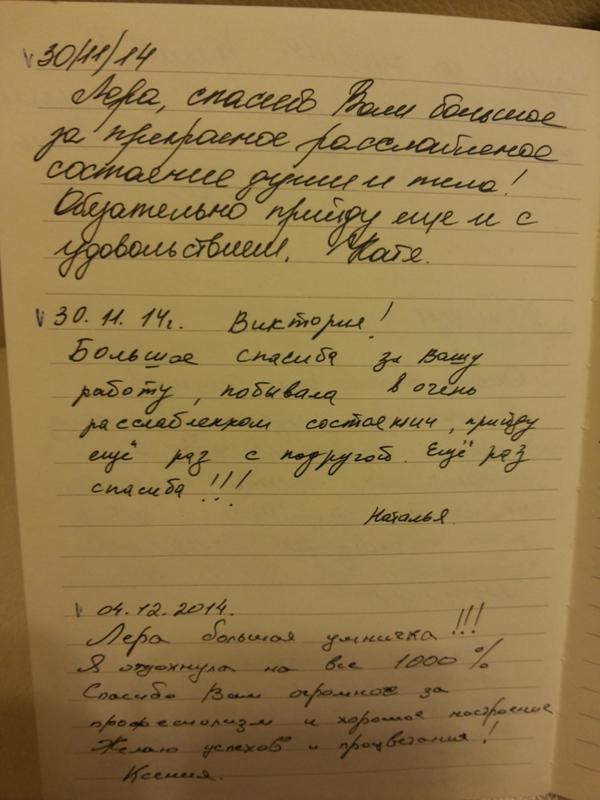 30/11/14
Лера, спасибо Вам большое
за прекрасное расслабленое
состояние души и тела!
Обязательно прийду еще и с
удовольствием. Катя.
30.11.14г. Виктория!
Большое спасиба за Вашу
работу, побывала в очень
расслабленном состоянии, прийду
ещё раз с подругой. Ещё раз
спасиба!!!
Наталья
04.12.2014.
Лера большая умничка!!!
Я отдохнула на все 1000%
Спасибо Вам огромное за
профессиолизм и хорошое настроение
Желаю успехов и процветания!
Ксения.